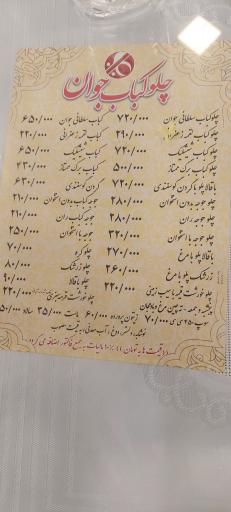 چلوکباب جوان
چلوکباب سلطانی جوان ۷۲۰/۰۰۰ کباب سلطانی جوان ۶۵۰/۰۰۰
چلوکباب لقمه زعفرانی ۲۹۰/۰۰۰ کباب لقمه زعفرانی ۲۲۰/۰۰۰
چلوکباب شیشلیک ۷۲۰/۰۰۰ کباب شیشلیک ۶۵۰/۰۰۰
چلوکباب برگ ممتاز ۵۰۰/۰۰۰ کباب برگ ممتاز ۲۳۰/۰۰۰
باقالا پلو با گردن گوسفندی ۷۲۰/۰۰۰ گردن گوسفندی ۶۳۰/۰۰۰
چلو جوجه بدون استخوان ۲۸۰/۰۰۰ جوجه کباب بدون استخوان ۲۱۰/۰۰۰
چلو جوجه ران ۲۸۰/۰۰۰ جوجه کباب ران ۲۱۰/۰۰۰
چلو جوجه با استخوان ۳۲۰/۰۰۰ جوجه با استخوان ۲۵۰/۰۰۰
باقالا پلو با مرغ ۲۷۰/۰۰۰ چلو کره ۷۰/۰۰۰
زرشک پلو با مرغ ۲۶۰/۰۰۰ چلو زرشک ۸۰/۰۰۰
چلو خورشت قیمه با سیب زمینی ۲۲۰/۰۰۰ چلو باقالا ۹۰/۰۰۰
چلو خورشت قورمه سبزی ۲۲۰/۰۰۰
سوپ ۷۰/۰۰۰ زیتون پرورده ۶۰/۰۰۰ ماست ۳۵/۰۰۰ سالاد
نوشابه، دلستر، دوغ، آب معدنی به قیمت مصوب